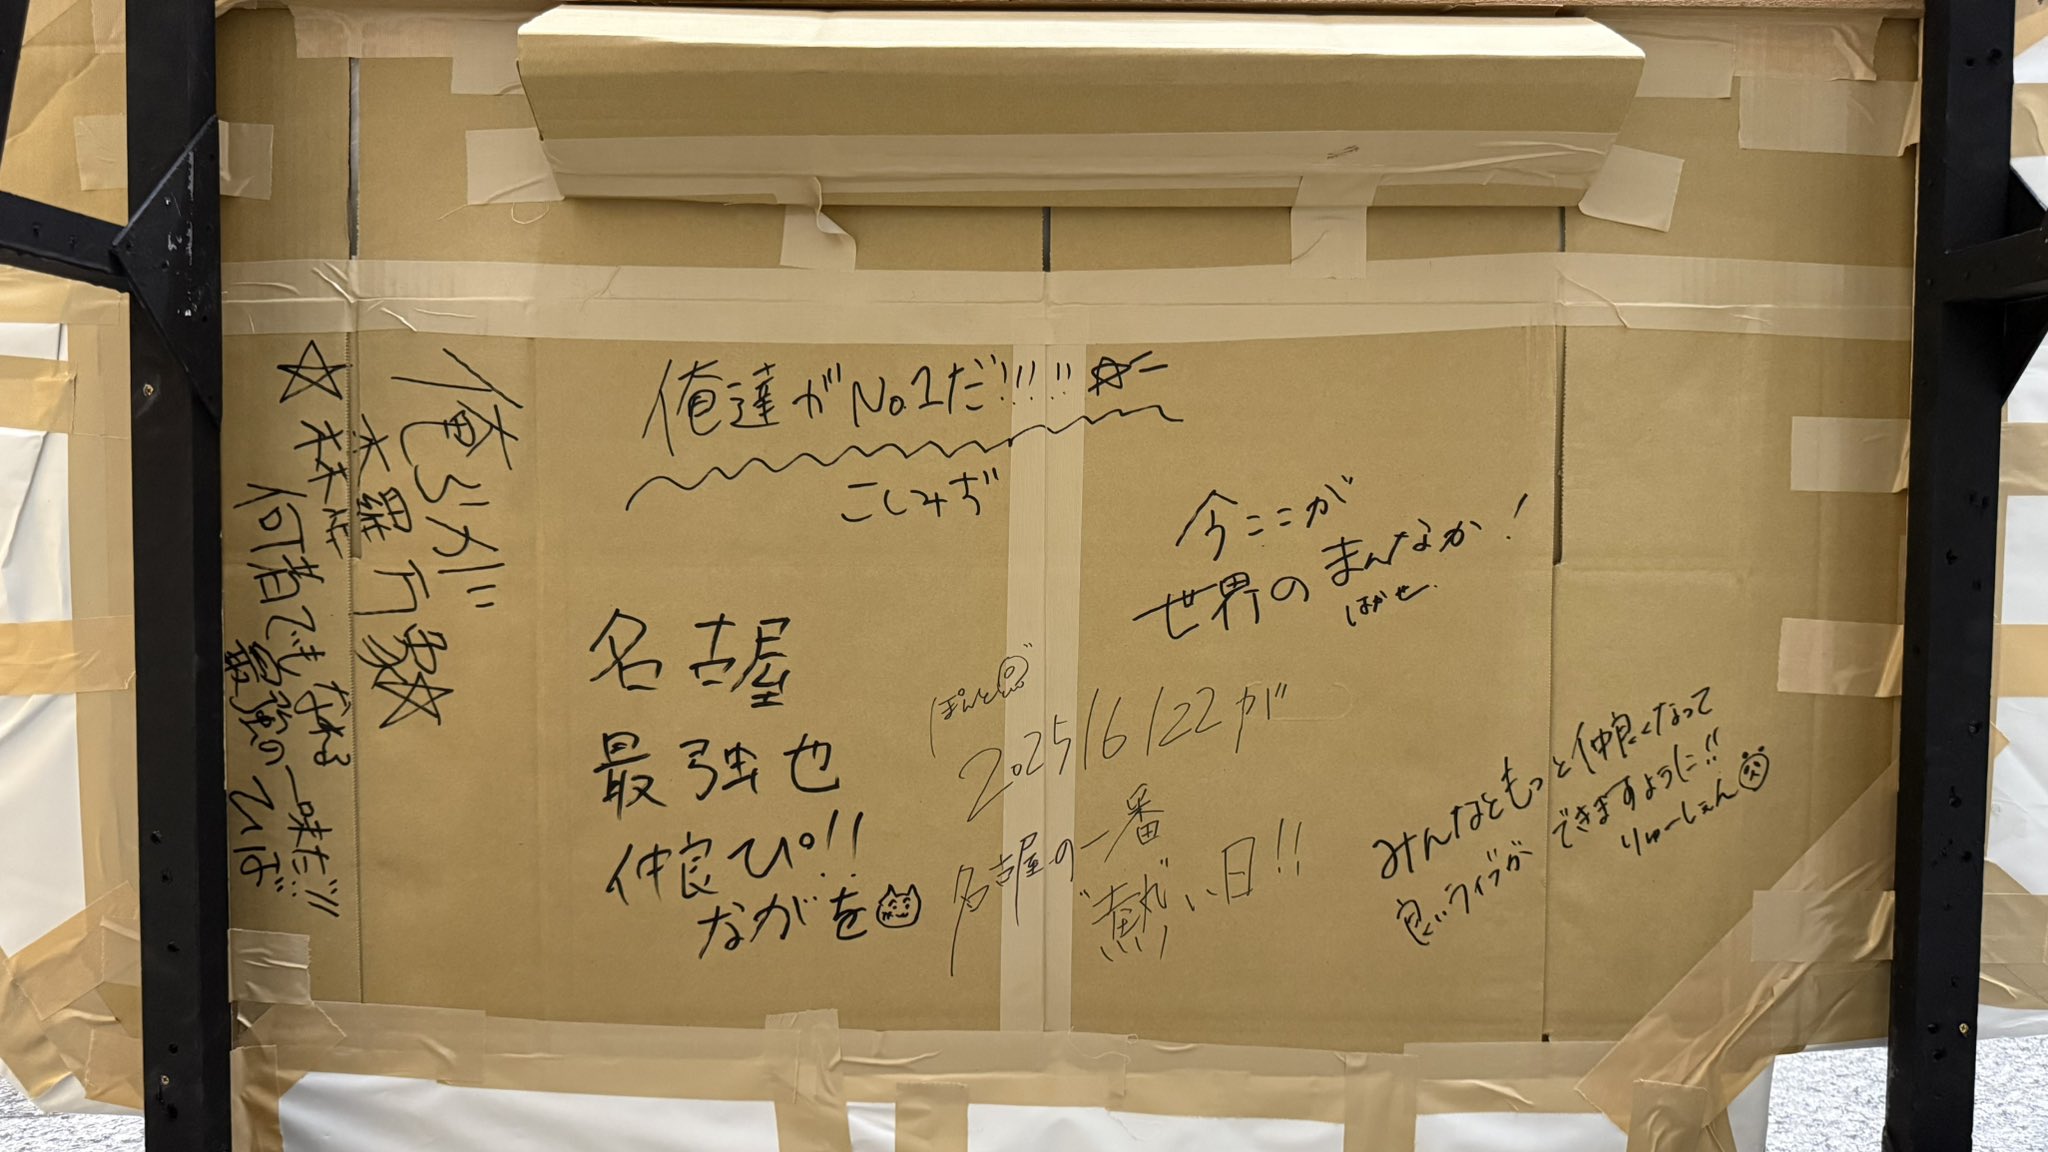 俺達がNo.1だ!!!!!☆
こしみず
今ここが
世界のまんなか!
はかせ
名古屋
最強也
仲良ぴ!!
ながを
ぽんと
2025/6/22が
名古屋の一番
熱い日!!
みんなともっと仲良くなって
良いライブが
できますように!!
りゅーしぇん
俺らが
☆森羅万象☆
何者でもなれる
最強の一味だ!!!
ひば